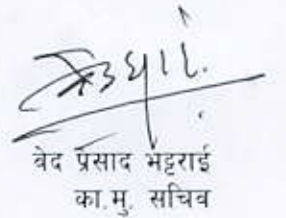 वेद प्रसाद भट्टराई
का.मु. सचिव